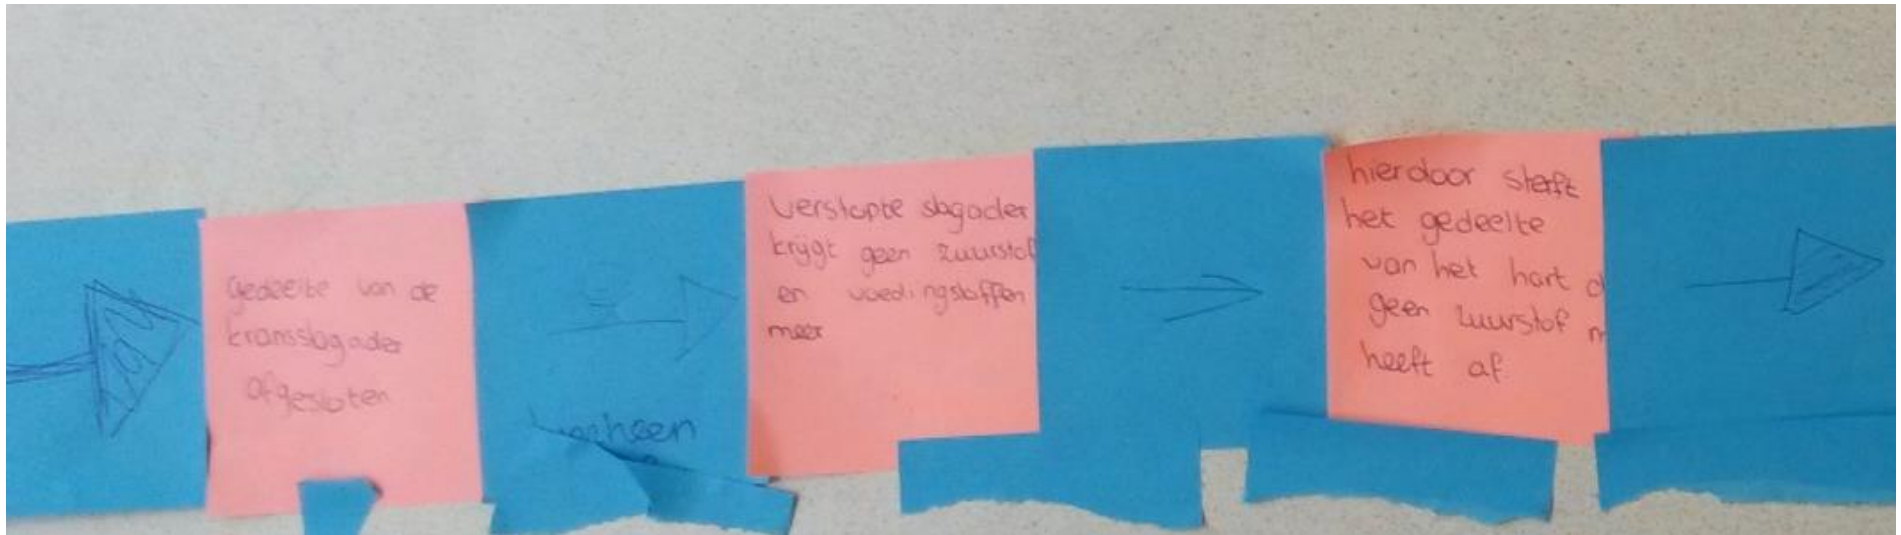 gedeelte van de
kransslagader
afgesloten
heen
verstopte slagader
krijgt geen zuurstof
en voedingstoffen
meer
hierdoor sterft
het gedeelte
van het hart
geen zuurstof
heeft af